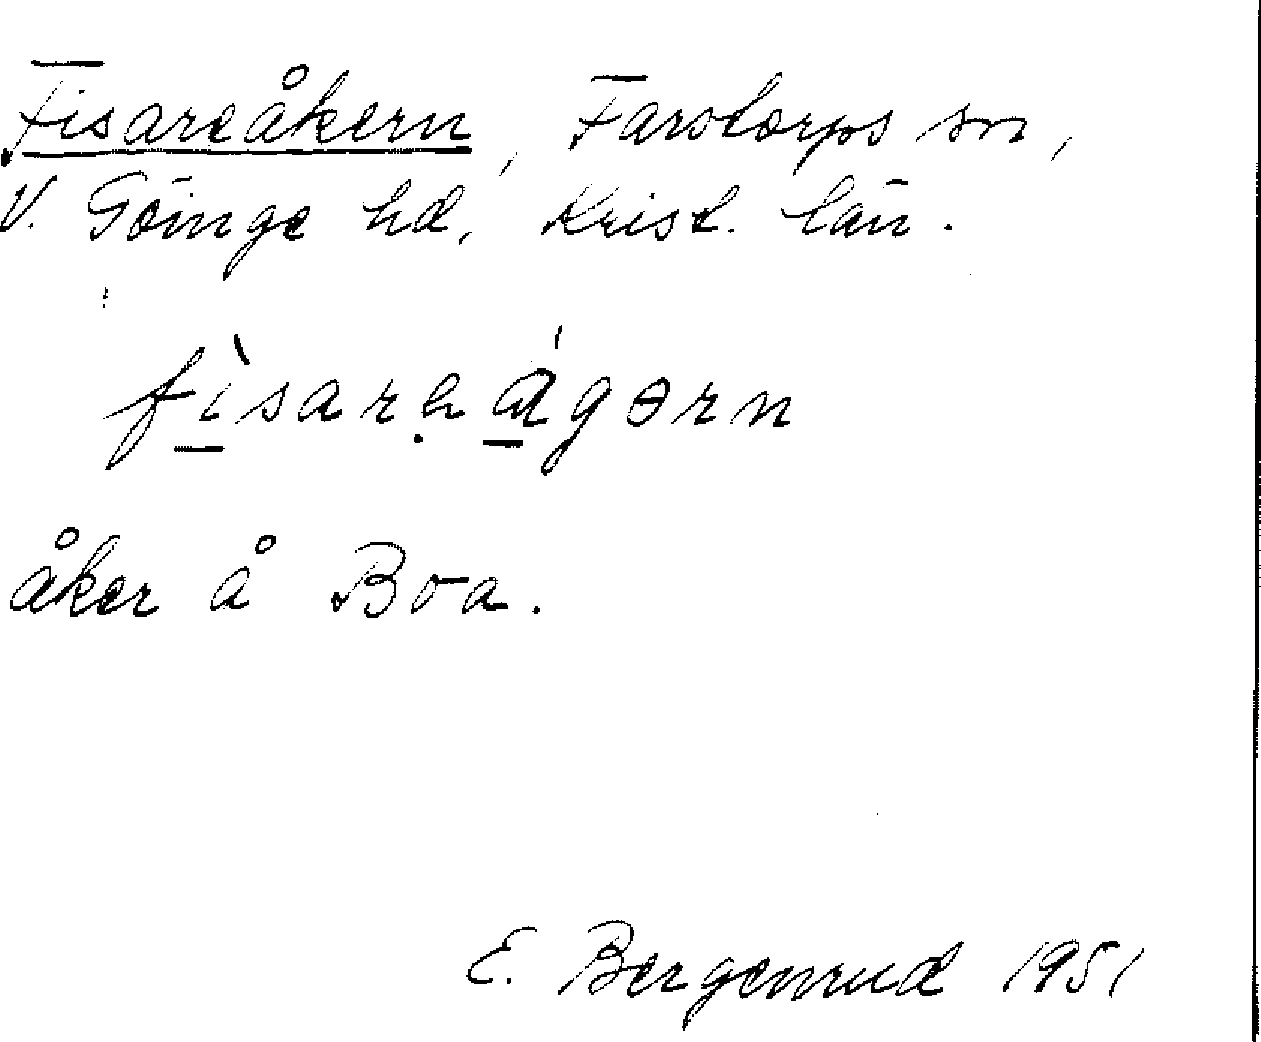 Fisareåkern, Farstorps sn,
V. Göinge hd, Krist. län.
fìsareágərn
åker å Boa.
E. Bergenrud 1951